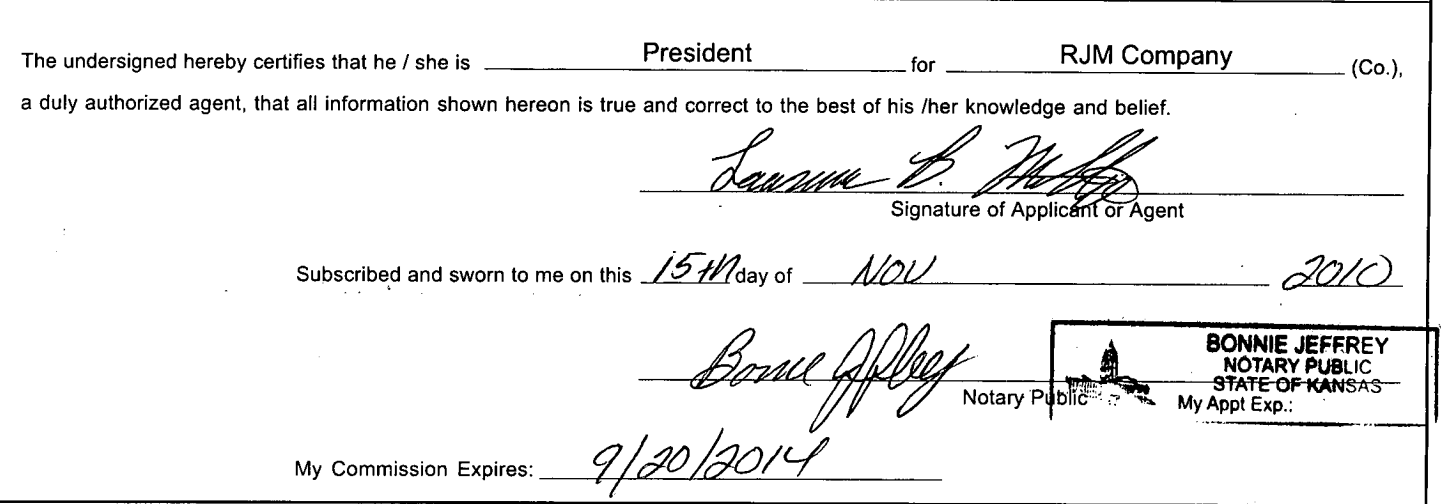 The undersigned hereby certifies that he / she is President for RJM Company (Co.),
a duly authorized agent, that all information shown hereon is true and correct to the best of his /her knowledge and belief.
B.
Signature of Applicant or Agent
Subscribed and sworn to me on this 15th day of NOV 2010
Bonnie Jeffrey
BONNIE JEFFREY
NOTARY PUBLIC
STATE OF KANSAS
Notary Public
My Appt Exp.:
My Commission Expires: 9/20/2014